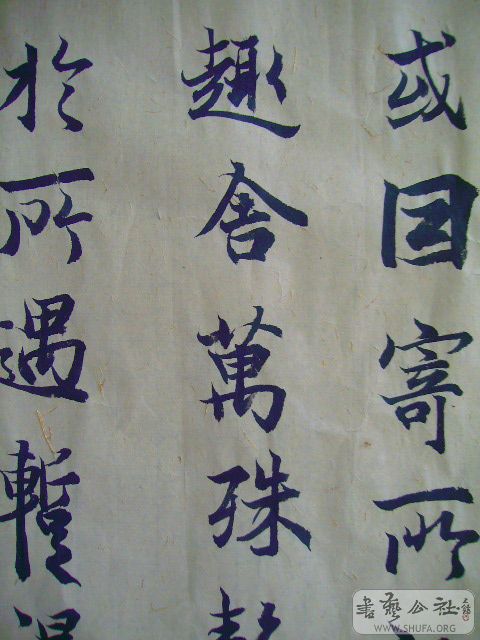 或因寄所
趣舍萬殊
於所遇蹔
書藝公社
WWW.SHUFA.ORG